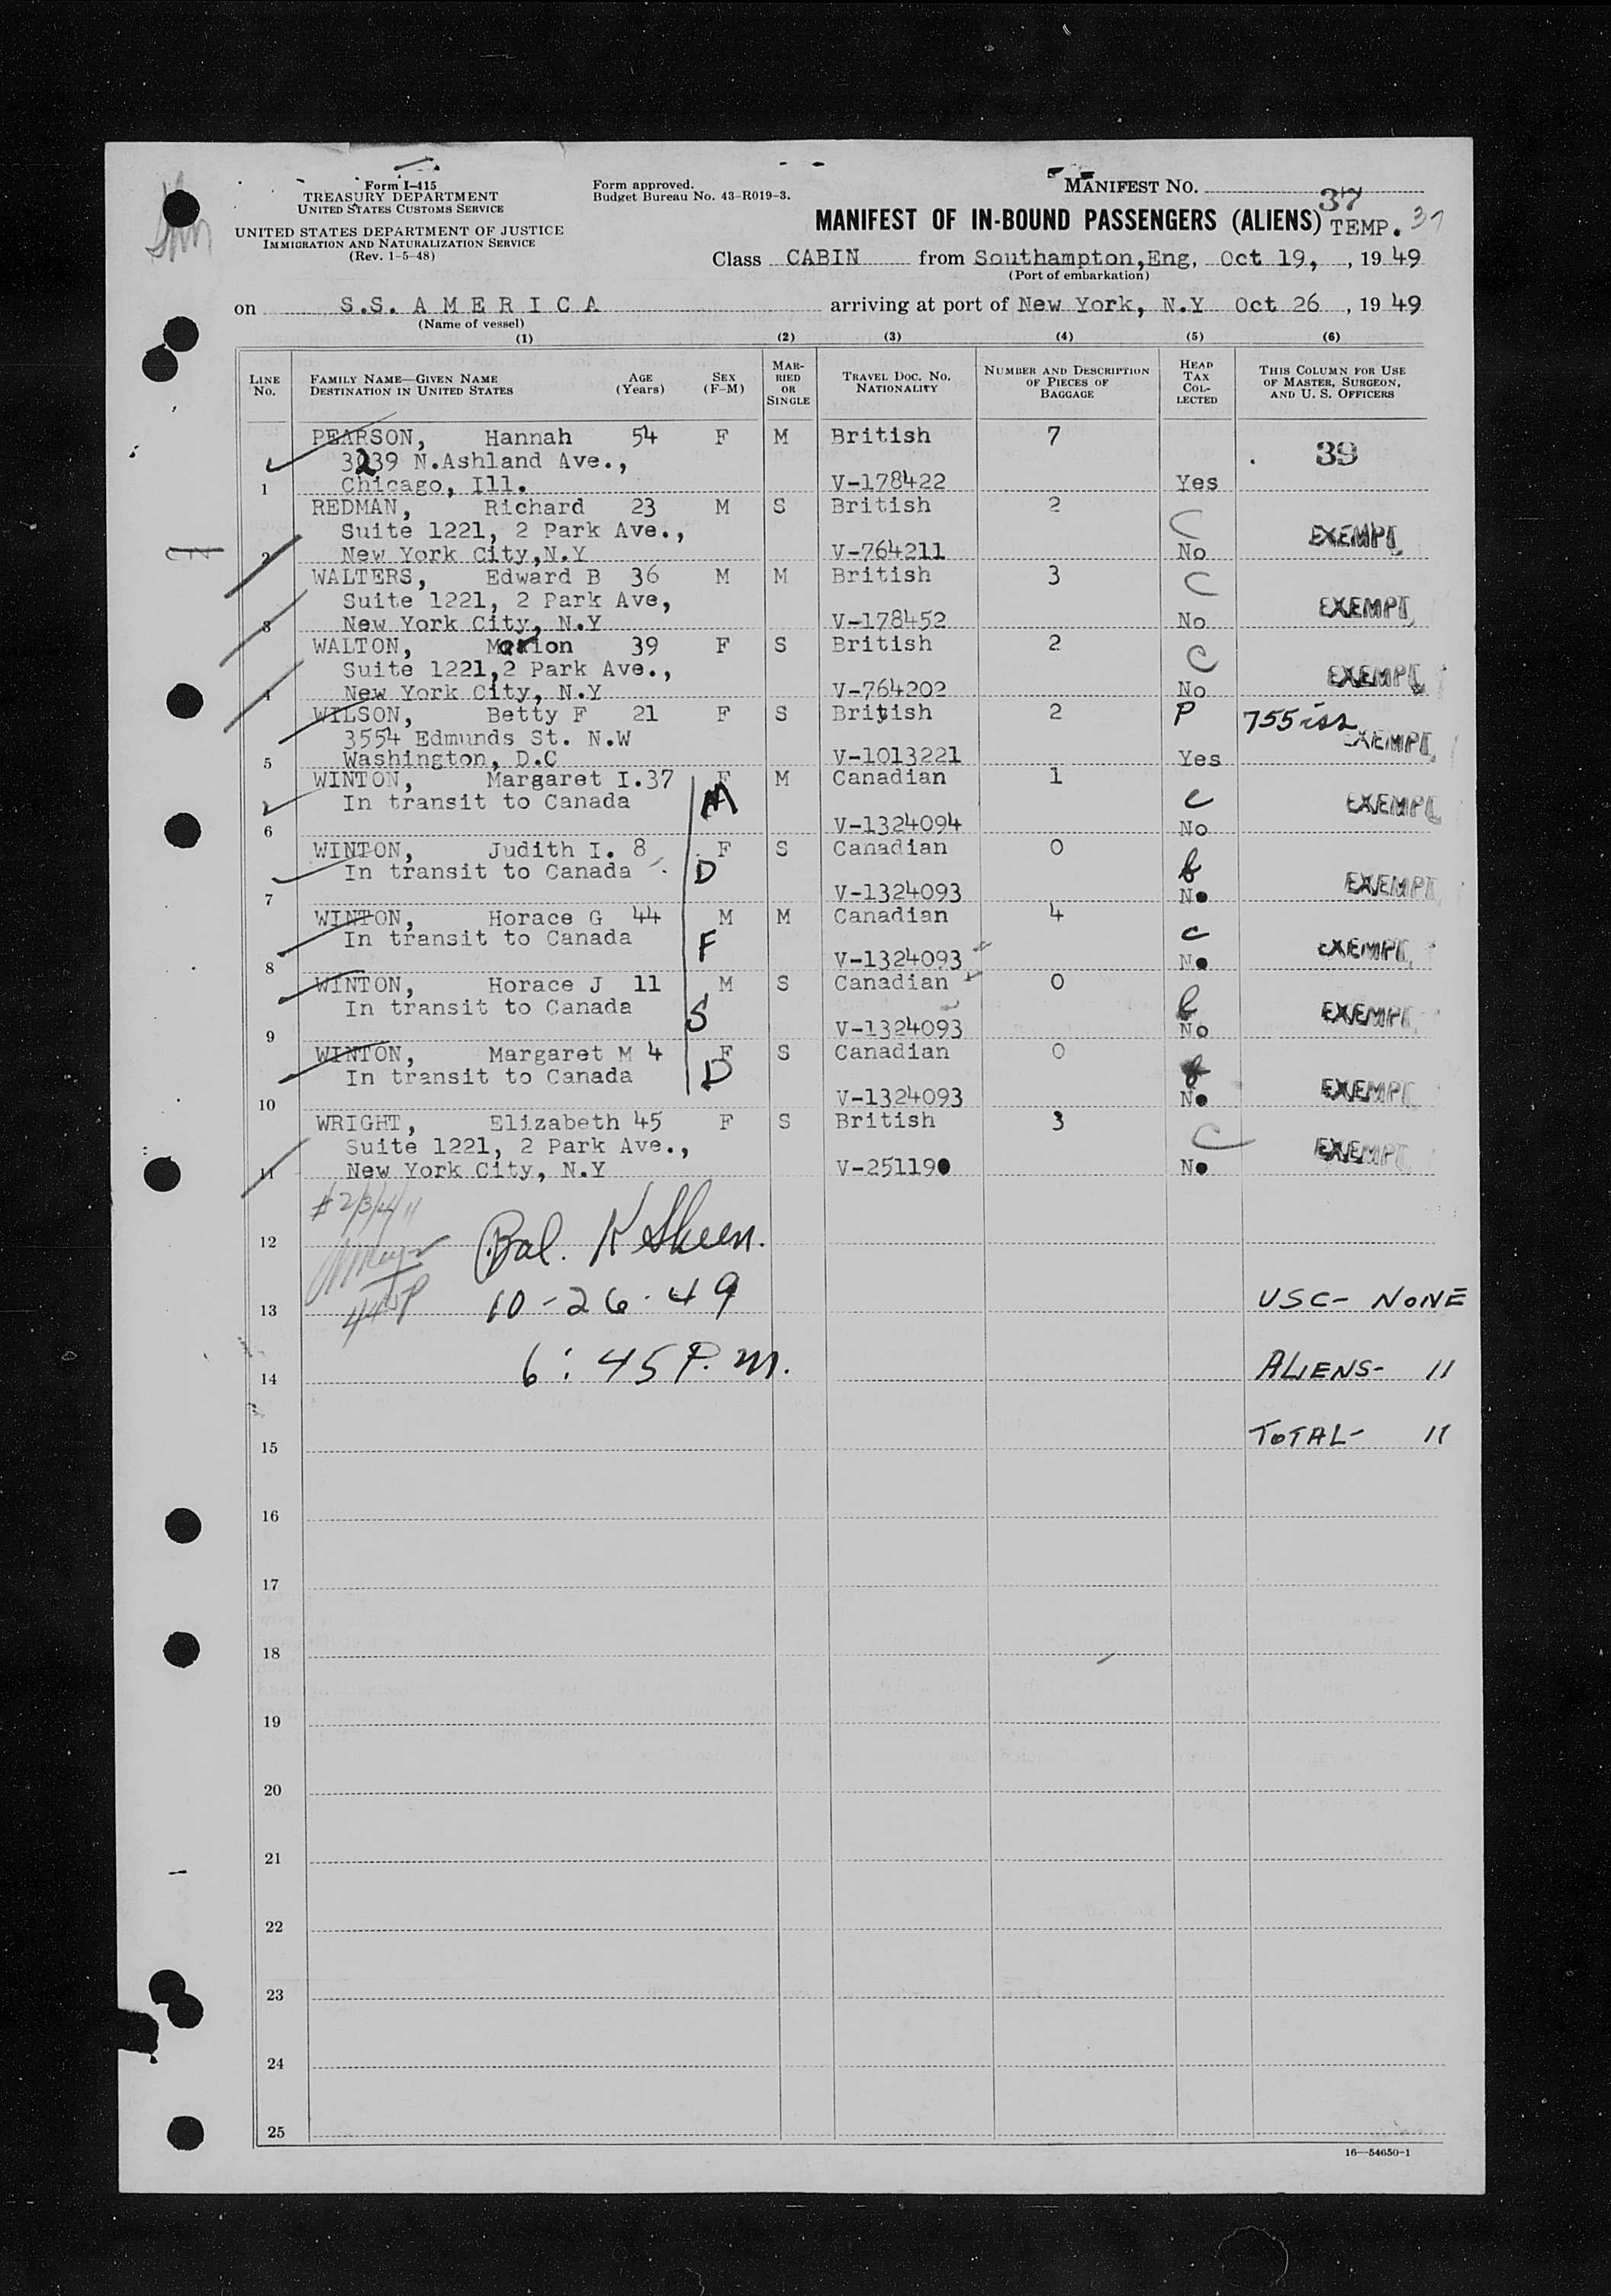 Form I-415
TREASURY DEPARTMENT
UNITED STATES CUSTOMS SERVICE
UNITED STATES DEPARTMENT OF JUSTICE
IMMIGRATION AND NATURALIZATION SERVICE
(Rev. 1-5-48)
Form approved.
Budget Bureau No. 43-R019-3.
MANIFEST NO.
37
MANIFEST OF IN-BOUND PASSENGERS (ALIENS) TEMP. 37
Class CABIN from Southampton,Eng, Oct 19, , 19 49
(Port of embarkation)
on S.S. A M E R I C A arriving at port of New York, N.Y Oct 26 , 19 49
(Name of vessel)
(1) (2) (3) (4) (5) (6)
LINE No. FAMILY NAME—GIVEN NAME DESTINATION IN UNITED STATES AGE (Years) SEX (F-M) MARRIED OR SINGLE TRAVEL DOC. NO. NATIONALITY NUMBER AND DESCRIPTION OF PIECES OF BAGGAGE HEAD TAX COLLECTED THIS COLUMN FOR USE OF MASTER, SURGEON, AND U. S. OFFICERS
PEARSON, Hannah 54 F M British 7
3239 N.Ashland Ave., 39
1 Chicago, Ill. V-178422 Yes
REDMAN, Richard 23 M S British 2
Suite 1221, 2 Park Ave., C EXEMPT
2 New York City,N.Y V-764211 No
WALTERS, Edward B 36 M M British 3 C
Suite 1221, 2 Park Ave, EXEMPT
3 New York City, N.Y V-178452 No
WALTON, Marion 39 F S British 2
Suite 1221,2 Park Ave., C EXEMPT
4 New York City, N.Y V-764202 No
WILSON, Betty F 21 F S British 2 P 755
3554 Edmunds St. N.W EXEMPT
5 Washington, D.C V-1013221 Yes
WINTON, Margaret I.37 F M Canadian 1
In transit to Canada M C EXEMPT
6 V-1324094 No
WINTON, Judith I. 8 F S Canadian 0
In transit to Canada D EXEMPT
7 V-1324093 No
WINTON, Horace G 44 M M Canadian 4
In transit to Canada F C EXEMPT
8 V-1324093 No
WINTON, Horace J 11 M S Canadian 0
In transit to Canada S EXEMPT
9 V-1324093 No
WINTON, Margaret M 4 F S Canadian 0
In transit to Canada D EXEMPT
10 V-1324093 No
WRIGHT, Elizabeth 45 F S British 3
Suite 1221, 2 Park Ave., C EXEMPT
11 New York City, N.Y V-251190 No
#2/3/4/11
12 Bal. K Skeen.
13 10-26-49 USC- NONE
14 6:45 P.M. ALIENS- 11
15 TOTAL- 11
16
17
18
19
20
21
22
23
24
25
16—54650-1